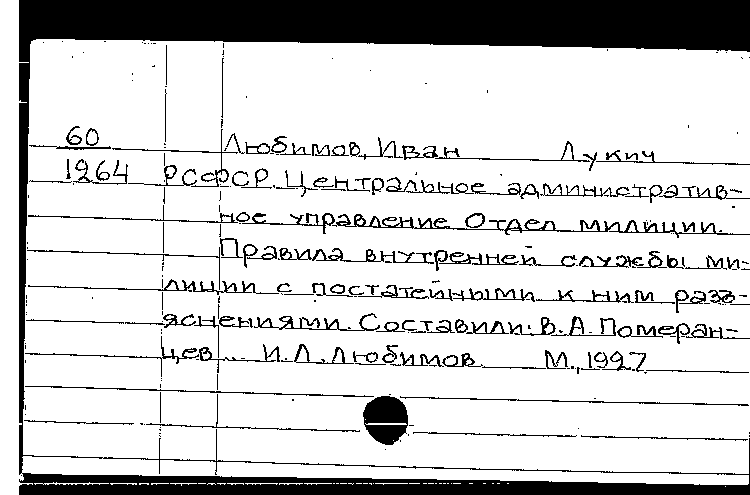 60 Любимов, Иван Лукич
1264 РСФСР. Центральное административ-
ное управление Отдел милиции.
Правила внутренней службы ми-
лиции с постатейными к ним разъ-
яснениями. Составили: В.А. Померан-
цев... И.Л. Любимов. М., 1927